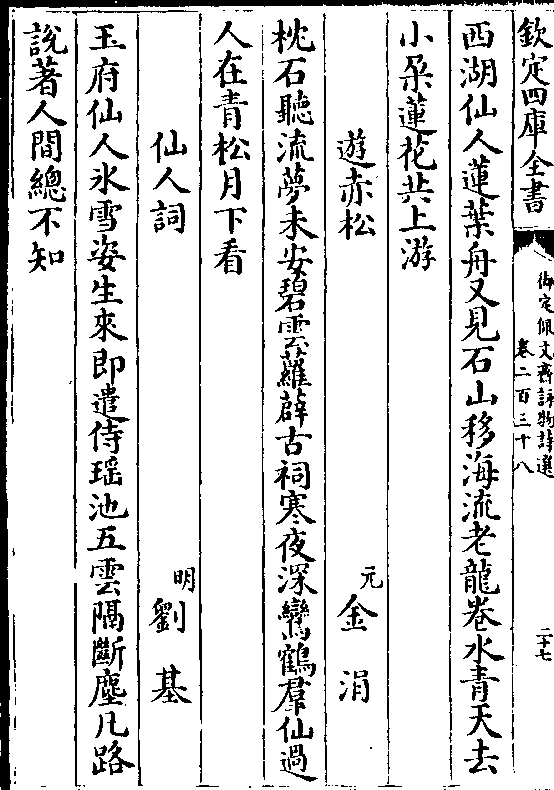 欽定四庫全書
御定佩文齋詠物詩選
卷二百三十八
二十七
西湖仙人蓮葉舟又見石山移海流老龍卷水青天去
小朶蓮花共上游
遊赤松
元 金涓
枕石聽流夢未安碧雲蘿薜古祠寒夜深鸞鶴羣仙過
人在青松月下看
仙人詞
明 劉基
玉府仙人氷雪姿生來即遣侍瑶池五雲隔斷塵凡路
說著人間總不知